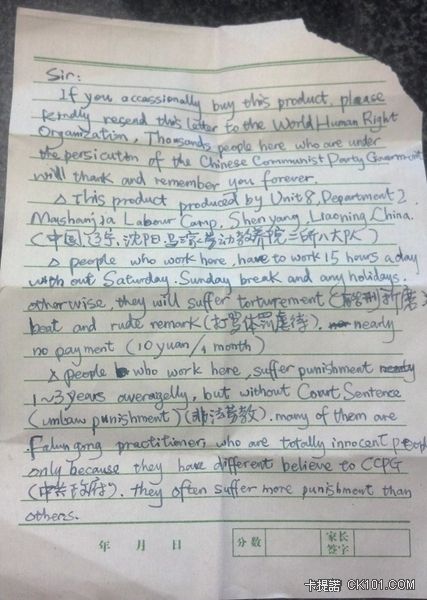 Sir:
If you occassionally buy this product, please
kindly resend this letter to the World Human Right
Organization, Thousands people here who are under
the persicution of the Chinese Communist Party Government
will thank and remember you forever.
△ This product produced by Unit 8, Department 2
Mashanjia Labour Camp, Shen yang, Liaoning, China.
(中国, 辽宁, 沈阳, 马三家劳动教养院二所八大队)
△ people who work here, have to work 15 hours a day
with out Saturday, Sunday break and any holidays.
otherwise, they will suffer torturement (酷刑折磨)
beat and rude remark (打骂体罚虐待). nearly
no payment (10 yuan/1 month)
△ people who work here, suffer punishment
1~3 years averagelly, but without Court Sentence
(unlaw punishment) (非法劳教). many of them are
Falun gong practitioner, who are totally innocent people
only because they have different believe to CCPG
(中共政府), they often suffer more punishment than
others.
年 月 日 分数 家长签字
卡提諾 CK101.COM